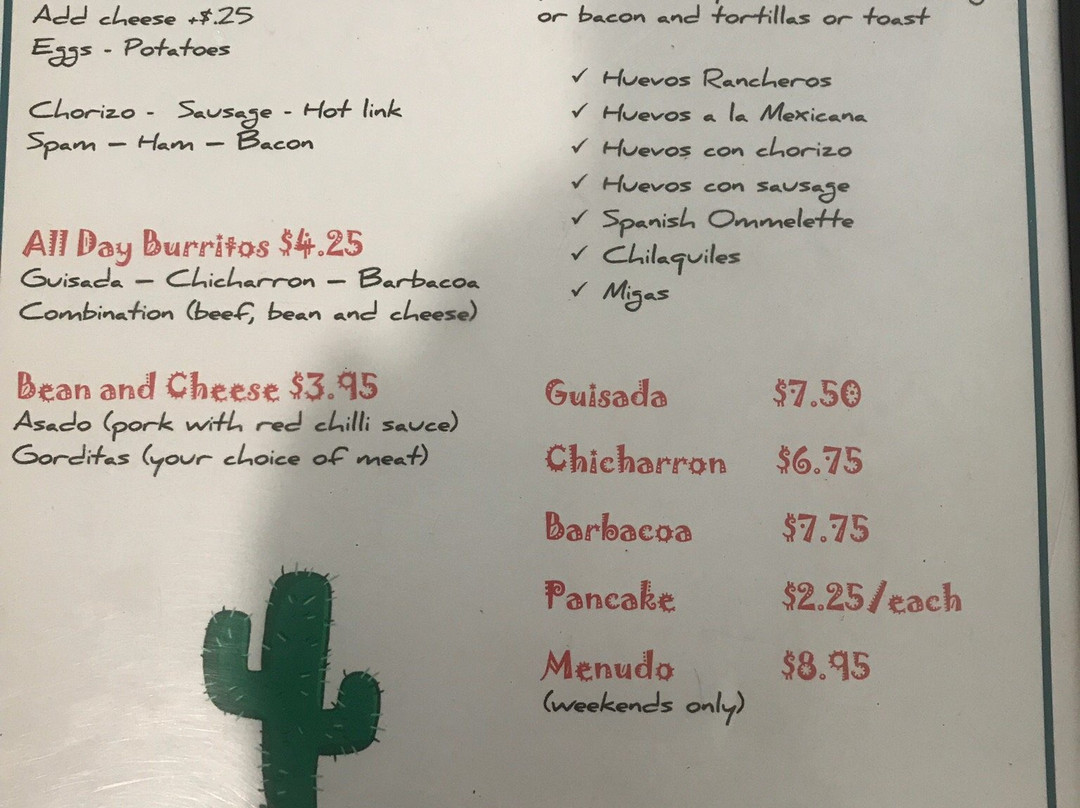 Add cheese +$.25
Eggs - Potatoes
Chorizo - Sausage - Hot link
Spam – Ham – Bacon
All Day Burritos $4.25
Guisada – Chicharron – Barbacoa
Combination (beef, bean and cheese)
Bean and Cheese $3.95
Asado (pork with red chilli sauce)
Gorditas (your choice of meat)
or bacon and tortillas or toast
✓ Huevos Rancheros
✓ Huevos a la Mexicana
✓ Huevos con chorizo
✓ Huevos con sausage
✓ Spanish Ommelette
✓ Chilaquiles
✓ Migas
Guisada $7.50
Chicharron $6.75
Barbacoa $7.75
Pancake $2.25/each
Menudo $8.95
(weekends only)